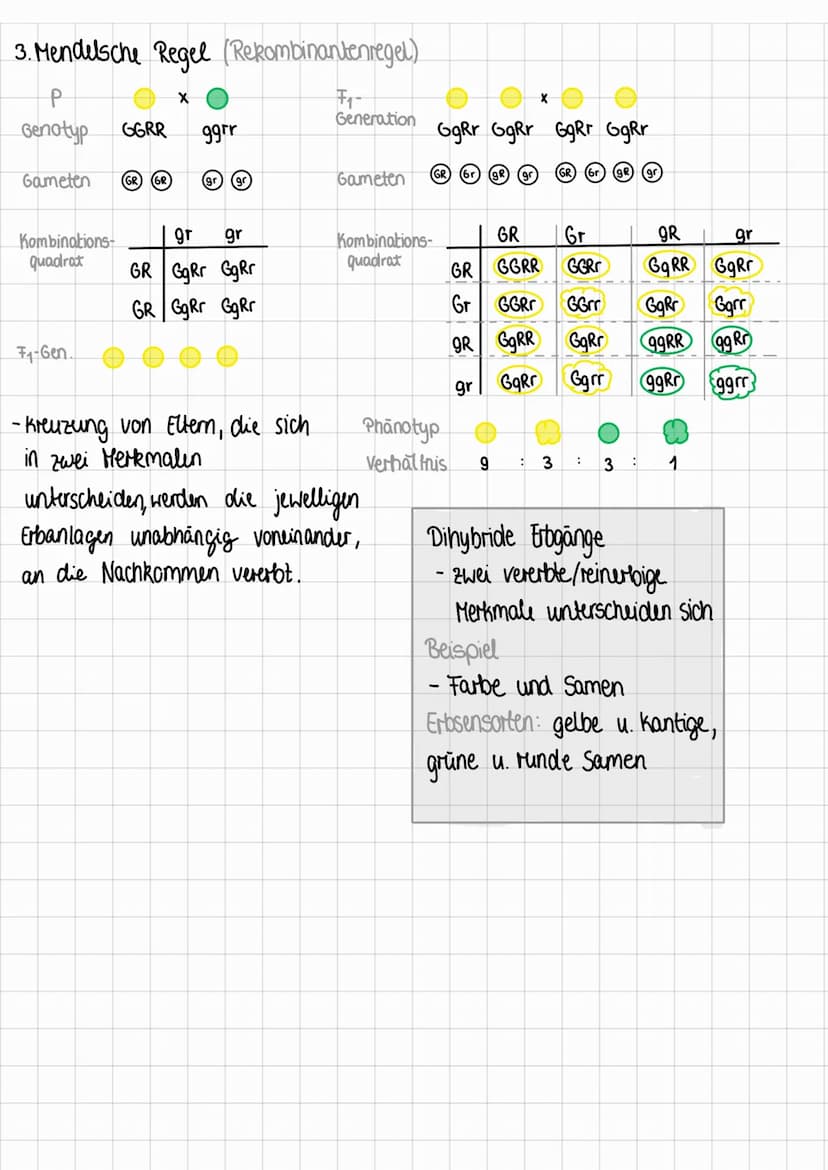 3. Mendelsche Regel (Rekombinantenregel)
P x
Genotyp GGRR ggrr
Gameten GR GR gr gr
Kombinations-
quadrat
gr gr
GR GgRr GgRr
GR GgRr GgRr
F1-Gen.
- Kreuzung von Eltern, die sich
in zwei Merkmalen
unterscheiden, werden die jewelligen
Erbanlagen unabhängig voneinander,
an die Nachkommen vererbt.
F1-
Generation
x
GgRr GgRr GgRr GgRr
Gameten GR Gr gR gr GR Gr gR gr
Kombinations-
quadrat
GR Gr gR gr
GR GGRR GGRr GgRR GgRr
Gr GGRr GGrr GgRr Ggrr
gR GgRR GgRr ggRR ggRr
gr GgRr Ggrr ggRr ggrr
Phänotyp
Verhältnis 9 : 3 : 3 : 1
Dihybride Erbgänge
- zwei vererbte/reinerbige
Merkmale unterscheiden sich
Beispiel
- Farbe und Samen
Erbsensorten: gelbe u. kantige,
grüne u. runde Samen